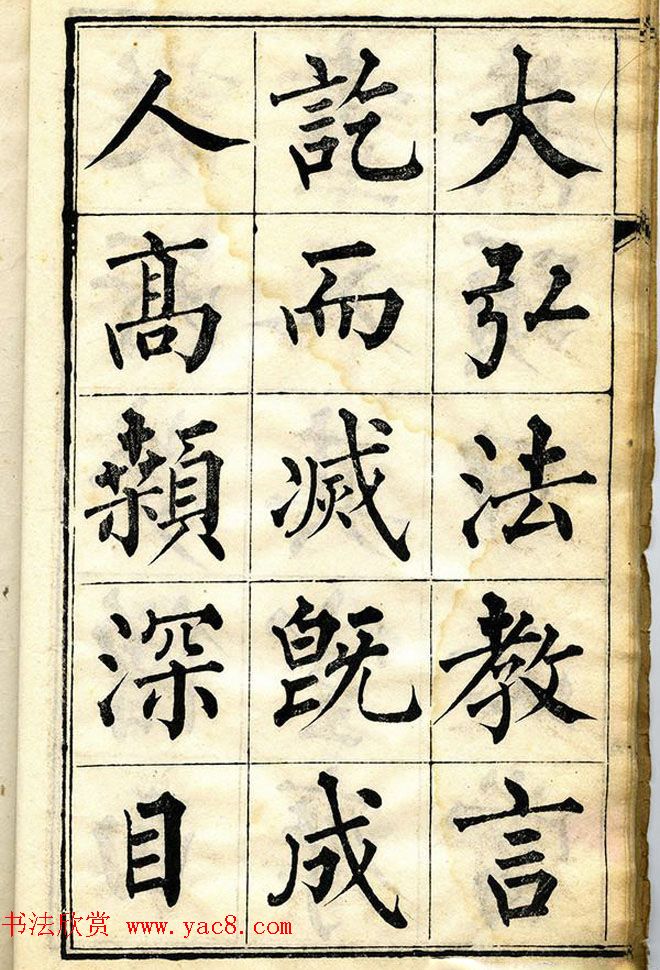 大弘法教言
訖而滅既成
人高顙深目
书法欣赏 www.yac8.com